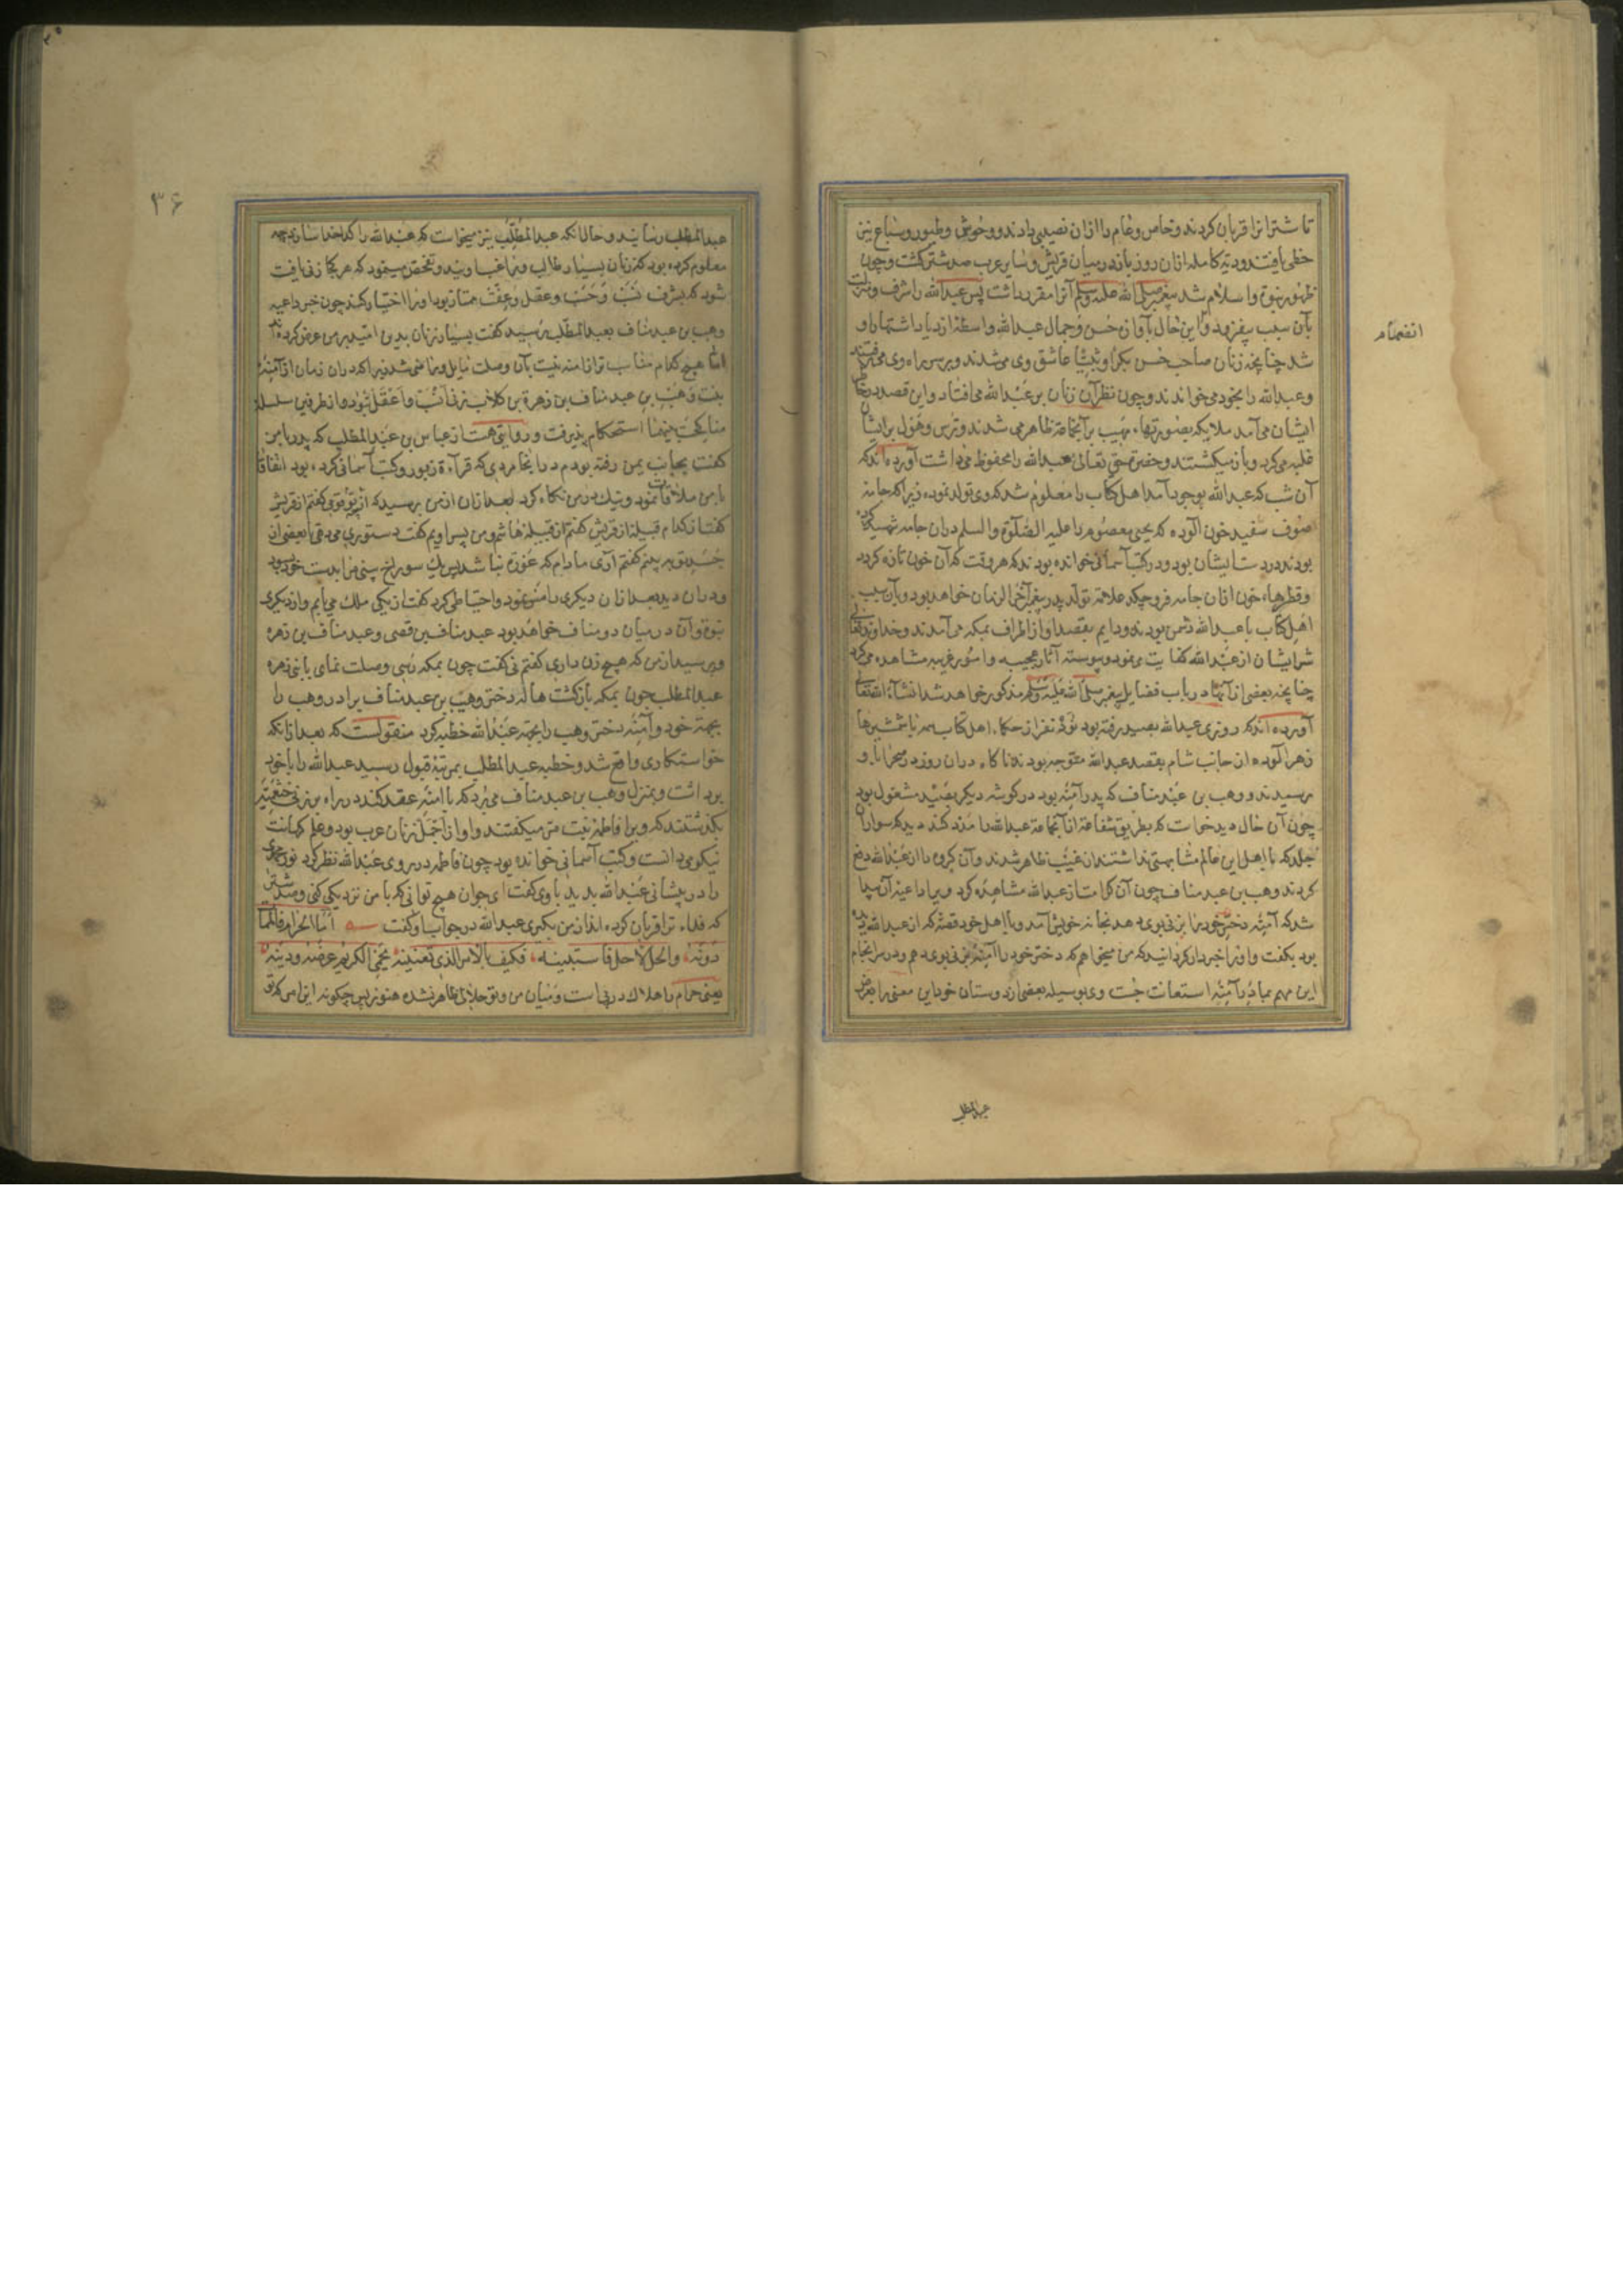 تا شترانرا قربان کردند و خاص و عام را ازان نصیبی دادند و وحوش و طیور و سباع نیز
حظی یافتند و دیة کامله ازان روز باز در میان قریش و سایر عرب صد شتر گشت و چون
ظهور نبوة و اسلام شد پیغمبر صلی الله علیه وسلم آنرا مقرر داشت پس عبدالله را شرف و منزلت
بآن سبب بیفزود و این حال با آوازه حسن و جمال عبدالله واسطه ازدیاد اشتهار او
شد چنانچه زنان صاحب حسن بکرا و ثیبا عاشق وی می شدند و بر سر راه وی می رفتند
و عبدالله را بخود می خواندند و چون نظر آن زنان بر عبدالله می افتاد و این قصد در خاطر
ایشان می آمد ملایکه بصورتهاء مهیب بر آنجماعة ظاهر می شدند و ترس و هول بر ایشان
غلبه می کرد و باز میگشتند و حضرت حق تعالی عبدالله را محفوظ می داشت آورده اند که
آن شب که عبدالله بوجود آمد اهل کتاب را معلوم شد که وی تولد نموده زیرا که جامه
صوف سفید خون آلوده که یحیی معصوم را علیه الصلوة والسلم دران جامه شهید کرده
بودند در دست ایشان بود و در کتب آسمانی خوانده بودند که هر وقت که آن خون تازه کردد
و قطرهاء خون ازان جامه فرو چکد علامة تولد پدر پیغمبر آخر الزمان خواهد بود و بآن سبب
اهل کتاب با عبدالله دشمن بودند و دایم بقصد او از اطراف بمکه می آمدند و خداوند تعالی
شر ایشان از عبدالله کفایت می نمود و پیوسته آثار عجیبه و امور غریبه مشاهده می کرد
چنانچه بعضی از آنها در باب فضایل پیغمبر صلی الله علیه وسلم مذکور خواهد شد انشاء الله تعالی
آورده اند که روزی عبدالله بصید رفته بود نود نفر از حکماء اهل کتاب همه با شمشیرها
زهر آلوده از جانب شام بقصد عبدالله متوجه بودند ناکاه دران روز در صحرا باو
رسیدند و وهب بن عبد مناف که پدر آمنه بود در کوشه دیکر بصید مشغول بود
چون آن حال دید خواست که بطریق شفاعة از آنجماعة عبدالله را مدد کند دید که سواران
جلد که با اهل این عالم مشابهتی نداشتند از غیب ظاهر شدند و آن کروه را از عبدالله دفع
کردند وهب بن عبد مناف چون آن کرامت از عبدالله مشاهده کرد ویرا داعیه آن پیدا
شد که آمنه دختر خود را بزنی بوی دهد بخانه خویش آمد و با اهل خود قصه که از عبدالله دیده
بود بکفت و او را خبردار کردانید که من میخواهم که دختر خود را آمنه بزنی بوی دهم و در سر انجام
این مهم بمادر آمنه استعانت جست وی بوسیله بعضی از دوستان خود این معنی را بعرض
انضمام
عبدالمطلب
۳۶
عبدالمطلب رسانید و حال آنکه عبدالمطلب نیز میخواست که عبدالله را کدخدا سازد چه
معلوم کرده بود که زنان بسیار طالب و راغب اویند و تفحص مینمود که هر کجا زنی یافت
شود که بشرف نسب و حسب و عقل و عفت ممتاز بود او را اختیار کند چون خبر داعیه
وهب بن عبد مناف بعبدالمطلب رسید کفت بسیار زنان بدین امید بر من عرض کرده اند
اما هیچ کدام مناسب تر از آمنه نیست بآن وصلت مایل و راضی شد زیرا که دران زمان از آمنه
بنت وهب بن عبد مناف بن زهرة بن کلاب زنی انسب و اعقل نبود و از طرفین سلسله
مناکحت بینهما استحکام پذیرفت و روایتی هست از عباس بن عبدالمطلب که پدرم با من
کفت بجانب یمن رفته بودم در انجا مردی که قراءة زبور و کتب آسمانی کرده بود اتفاقا
با من ملاقات نمود و نیک در من نکاه کرد بعد ازان از من پرسید که از چه قومی کفتم از قریش
کفت از کدام قبیله از قریش کفتم از قبیله هاشم و من پسر اویم کفت دستوری می دهی تا بعضی از
جسد تو ببینم کفتم آری مادام که عورة نباشد پس یک سوراخ بینی مرا بدست خود بسود
و دران دید بعد ازان دیکری را منوط نمود و احتیاطی کرد کفت از یکی ملک می یابم و از دیکری
نبوة و آن در میان دو مناف خواهد بود عبد مناف بن قصی و عبد مناف بن زهره
و پرسید از من که هیچ زن داری کفتم نی کفت چون بمکه رسی وصلت نمای با بنی زهره
عبدالمطلب چون بمکه باز کشت هاله دختر وهیب بن عبد مناف برادر وهب را
بجهة خود و آمنه دختر وهب را بجهة عبدالله خطبه کرد منقولست که بعد ازانکه
خواستکاری واقع شد و خطبه عبدالمطلب بمرتبه قبول رسید عبدالله را با خود
برداشت و بمنزل وهب بن عبد مناف می برد که با آمنه عقد کند در راه بر زنی خثعمیه
بکذشتند که ویرا فاطمه بنت مر میکفتند و او از اجمل زنان عرب بود و علم کهانت
نیکو می دانست و کتب آسمانی خوانده بود چون فاطمه در روی عبدالله نظر کرد نور نبوی
را در پیشانی عبدالله بدید با وی کفت ای جوان هیچ توانی که با من نزدیکی کنی و صد شتر
که فداء ترا قربان کرده اند از من بکیری عبدالله در جواب او کفت اما الحرام فالممات
دونه والحل لا حل فاستبینه فکیف بالامر الذی تبغینه یحمی الکریم عرضه و دینه
یعنی حرام را هلاک در پی است و میان من و تو حلالی ظاهر نشده هنوز پس چکونه این امر که تو